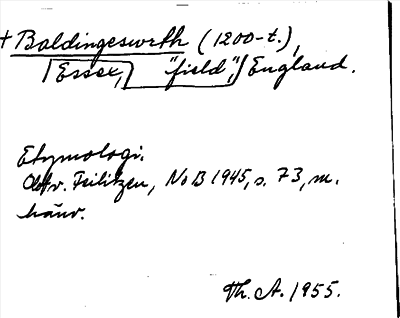 + Baldingeswrth (1200-t.),
Essex, "field", England.
Etymologi.
O. v. Feilitzen, NoB 1945, s. 73, m.
hänv.
Th. A. 1955.